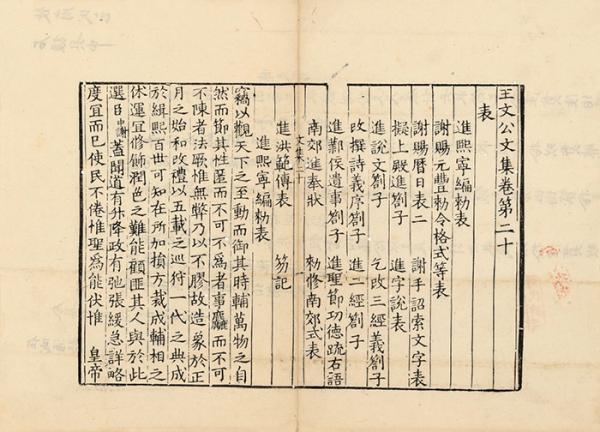 王文公文集卷第二十
表
進熙寧編勑表
謝賜元豐勑令格式等表
謝賜曆日表二 謝手詔索文字表
擬上殿進劄子 進字說表
進說文劄子 乞改三經義劄子
改撰詩義序劄子 進二經劄子
進鄴侯遺事劄子 進聖節功德疏右語
南郊進奉狀 勑修南郊式表
文集二十 一
進洪範傳表 笏記
進熙寧編勑表
竊以觀天下之至動而御其時輔萬物之自
然而節其性匿而不可不爲者事麤而不可
不陳者法惟無弊乃以不膠故造象於正
月之始和改禮以五載之巡狩一代之典成
於緝熙百世可知在所加損方裁成輔相之
休運宜修飾潤色之難能顧匪其人與於此
選中謝蓋聞道有升降政有弛張緩急詳略
度宜而已使民不倦惟聖爲能伏惟 皇帝